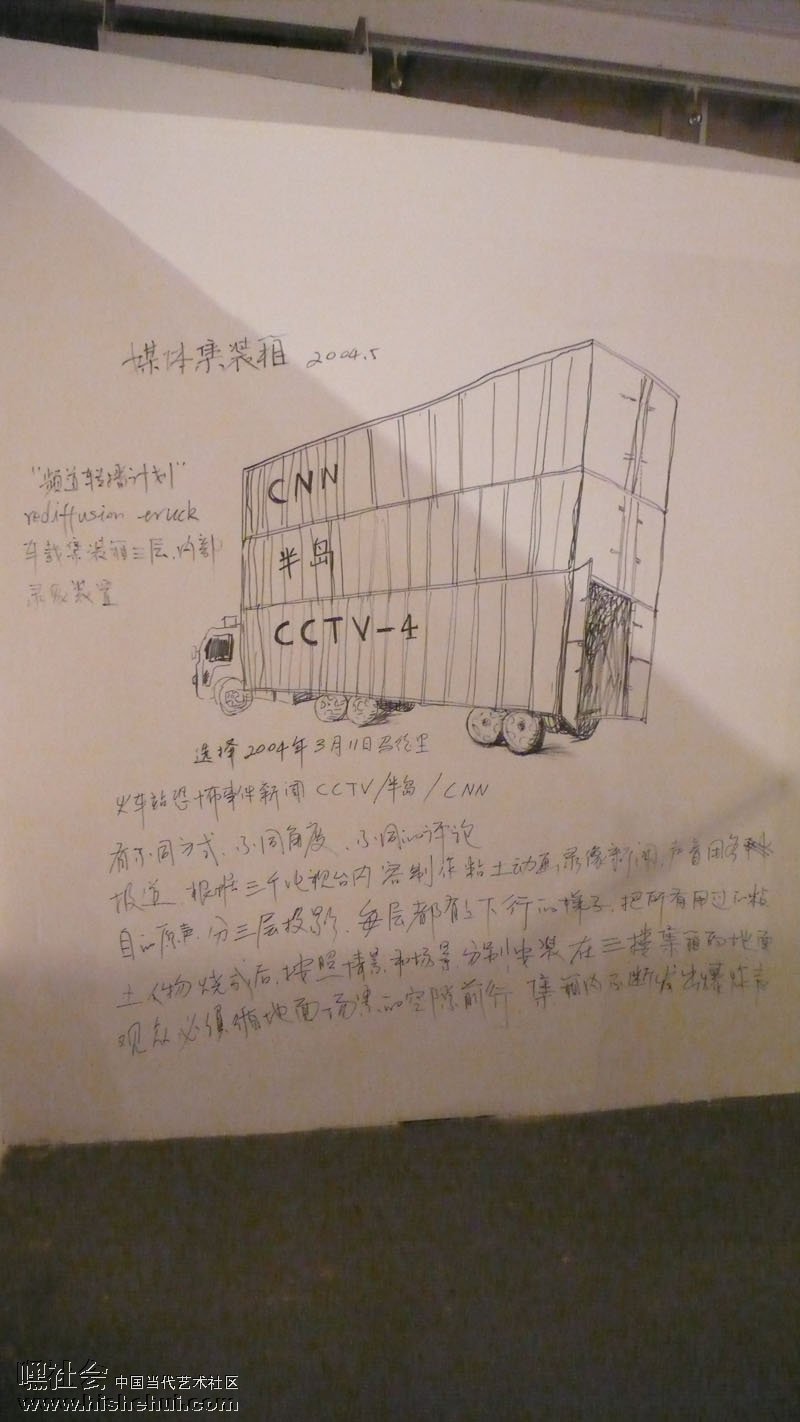 媒体集装箱 2004.5
"频道转播计划"
rediffusion eruck
车载集装箱三层.内部
录放装置
CNN
半岛
CCTV-4
选择2004年3月11日马德里
火车站恐怖事件新闻 CCTV/半岛/CNN
有不同方式、不同角度、不同的评论
报道.根据三个电视台内容制作粘土动画,录像新闻,声音用各
自的原声.分三层投影.每层都有下行的梯子.把所有用过的粘
土人物烧成后,按照情景和场景,分别安装在三楼集箱的地面
观众必须循地面场景的空隙前行.集箱内不断发出爆炸声
嘿社会 中国当代艺术社区
www.hishehui.com